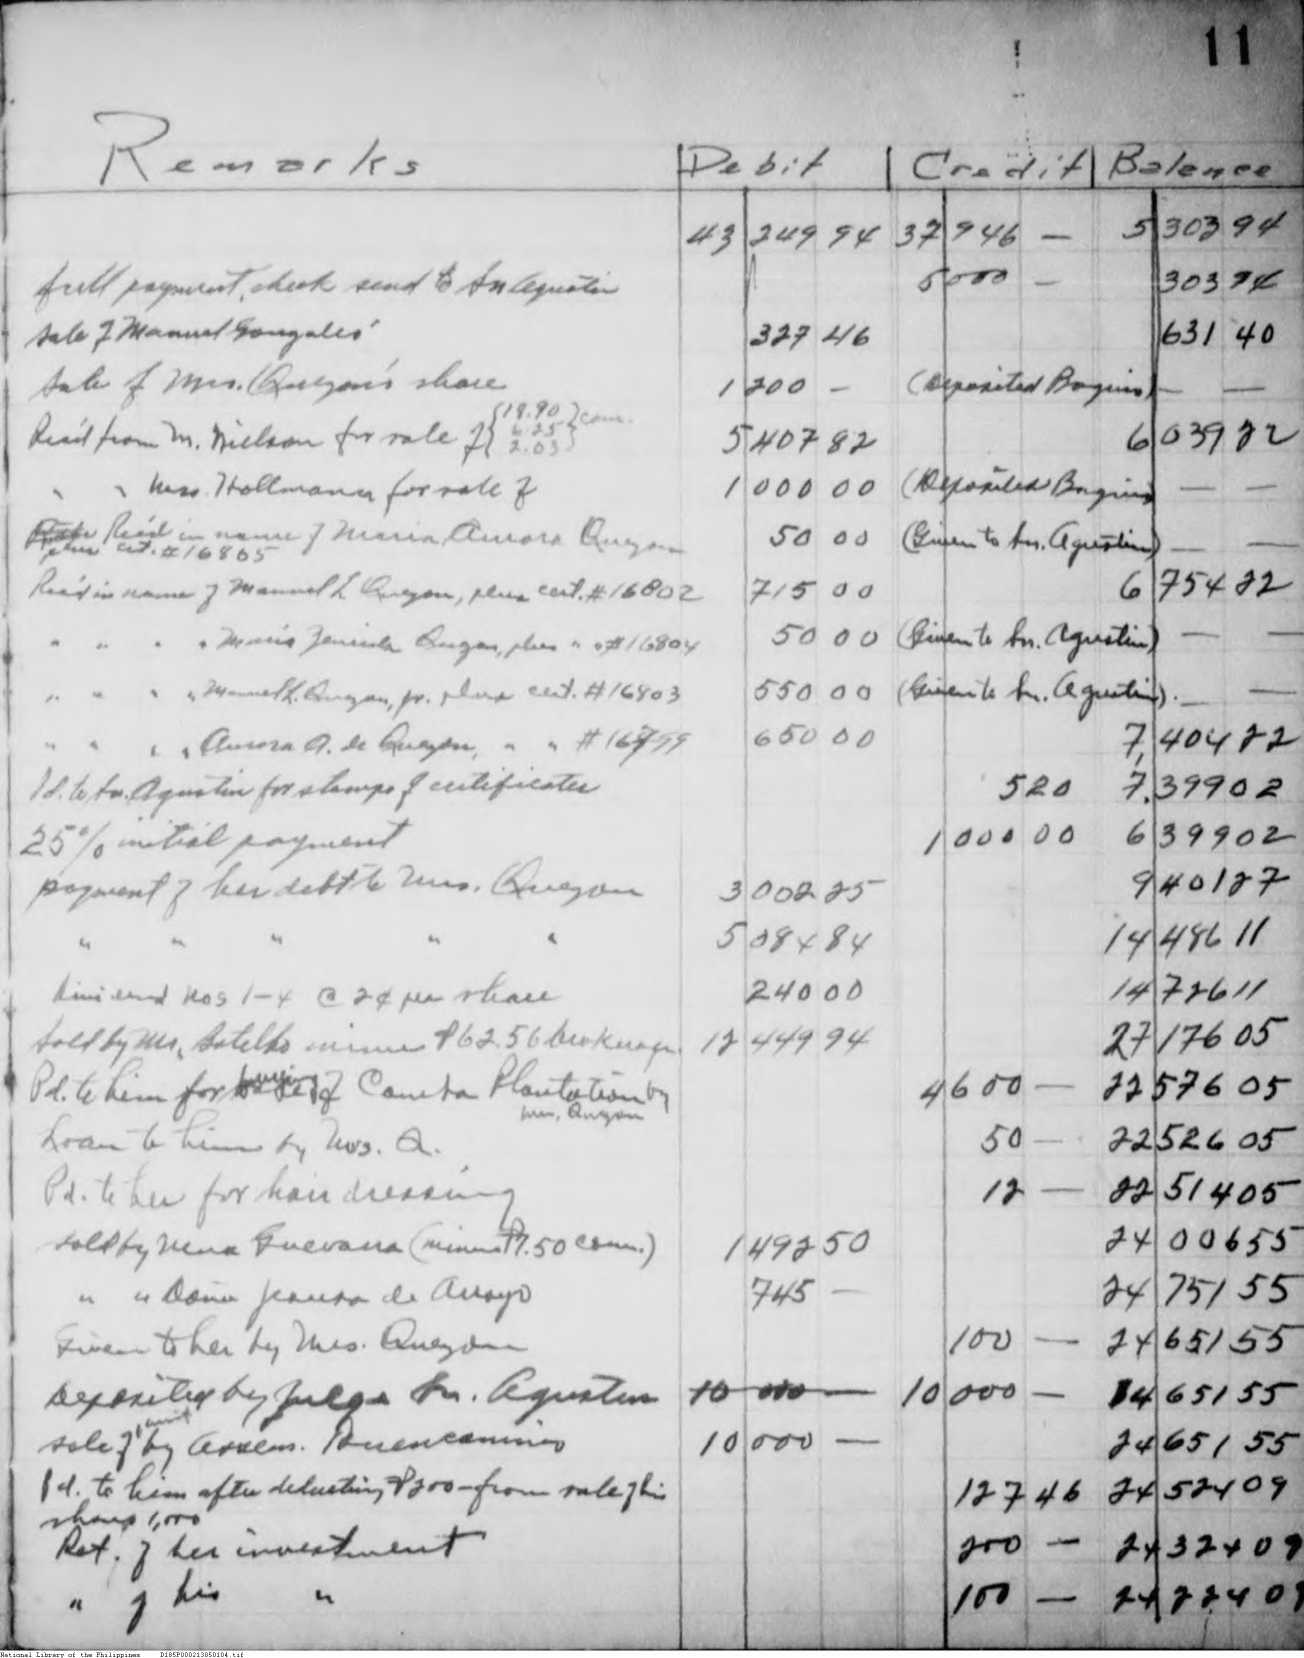 11
Remarks | Debit | Credit | Balance
43 249 94 37 946 — 5 303 94
full payment, check send to Sn Agustin 5000 — 303 94
sale of Manuel Gonzales' 327 46 631 40
Sale of Mrs. Quezon's share 1 200 — (Deposited Baguio) — —
Rec'd from M. Nielson for sale of {18.90 6.25 2.03} com. 5 407 82 6 039 22
" " Mrs. Hollmann for sale of 1 000 00 (Deposited Baguio) — —
Rec'd in name of Maria Aurora Quezon 50 00 (Given to Sn. Agustin) — —
plus cert. #16805
Rec'd in name of Manuel L Quezon, plus cert. #16802 715 00 6 754 22
" " " " Maria Zeneida Quezon, plus " " #16804 50 00 (Given to Sn. Agustin) — —
" " " " Manuel L. Quezon, jr. plus cert. #16803 550 00 (Given to Sn. Agustin). — —
" " " " Aurora A. de Quezon, " " #16799 650 00 7,404 22
Pd. to Sn. Agustin for stamps of certificates 5 20 7.399 02
25% initial payment 1 000 00 6 399 02
payment of her debt to Mrs. Quezon 3 002 25 9 401 27
" " " " " 5 084 84 14 486 11
Dividend Nos 1-4 @ 2¢ per share 240 00 14 726 11
Sold by Mr. Botelho minus ₱62.56 brokerage. 12 449 94 27 176 05
Pd. to him for buying of Canuba Plantation by 4 600 — 22 576 05
Mrs. Quezon
Loan to him by Mrs. Q. 50 — 22 526 05
Pd. to her for hair dressing 12 — 22 514 05
sold by Nena Guevara (minus ₱7.50 com.) 1 492 50 24 006 55
" " Doña Jesusa de Arroyo 745 — 24 751 55
Given to her by Mrs. Quezon 100 — 24 651 55
Deposited by Judge Sn. Agustin 10 000 — 10 000 — 14 651 55
sale of by Assem. Buencamino 10 000 — 24 651 55
Pd. to him after deducting ₱200— from sale of his 127 46 24 524 09
shares 1,000
Ret. of her investment 200 — 24 324 09
" of his " 100 — 24 224 09
National Library of the Philippines D185P000213850104.tif